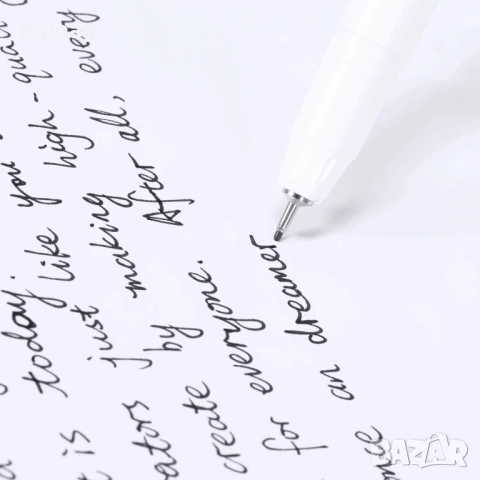 is today.
ators just like you
create by making high-quali
for everyone. After all, every
me an dreamer
BAZAR